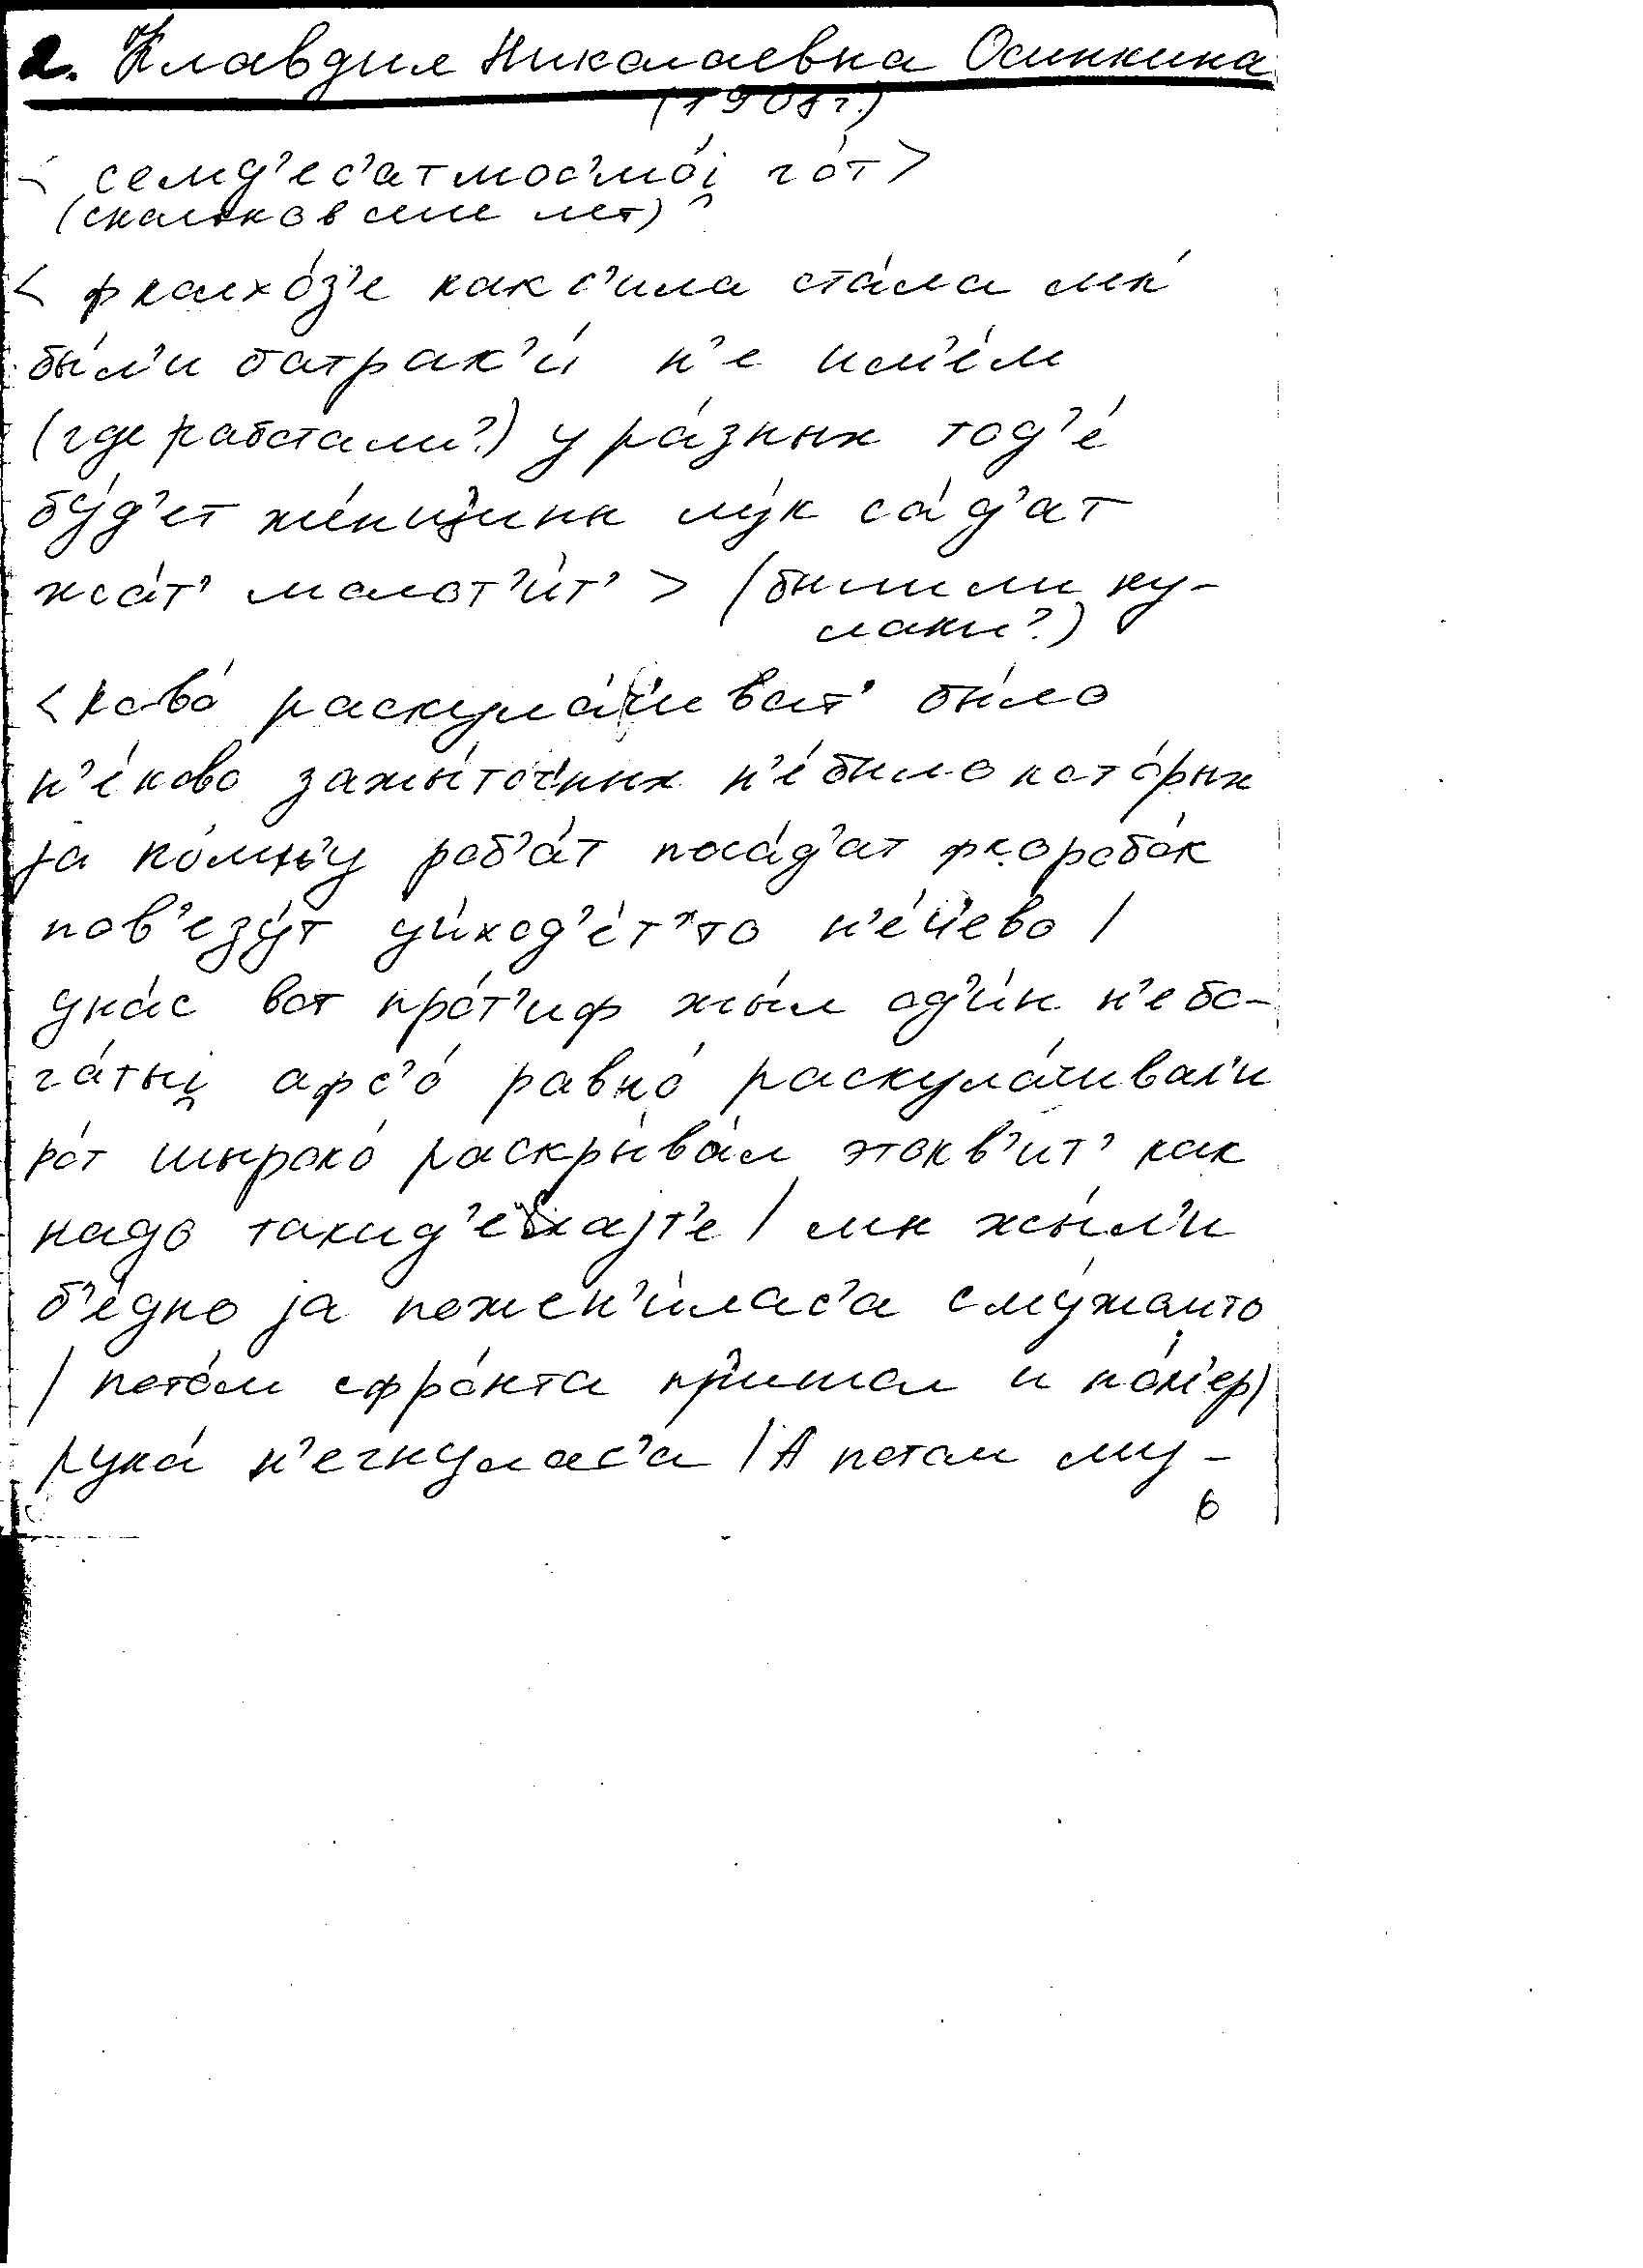 2. Клавдия Николаевна Осинкина
(1908 г.)
< семд'ес'атмос'мо́i̯ го́т >
(сколько в сме лет)
< фколхо́з'е как с'ила ста́ла мы́
бы́л'и батрак'и́ н'е им'е́м
(где работали?) у ра́зных тод'е́
бу́д'ет же́нщины лу́к са́д'ат
жа́т' молот'и́т' > (были ли ку-
лаки?)
< Ково́ раскула́ч'иват' бы́ло
н'е́ково зажы́точных н'е́было кото́рых
jа по́мн'у роб'а́т поса́д'ат фкоробо́к
пов'езу́т н'е́ч'ево /
уна́с вот про́т'иф жы́л од'и́н н'ебо-
га́тыi̯ афс'о́ равно́ раскула́чивал'и
ро́т шыроко́ раскрыва́л как
надо / мы жы́л'и
б'е́дно jа пожен'и́лас'а
/ пото́м сфро́нта пр'ишол и по́м'ер /
рука́ н'егнулас'а / А потом му-
6